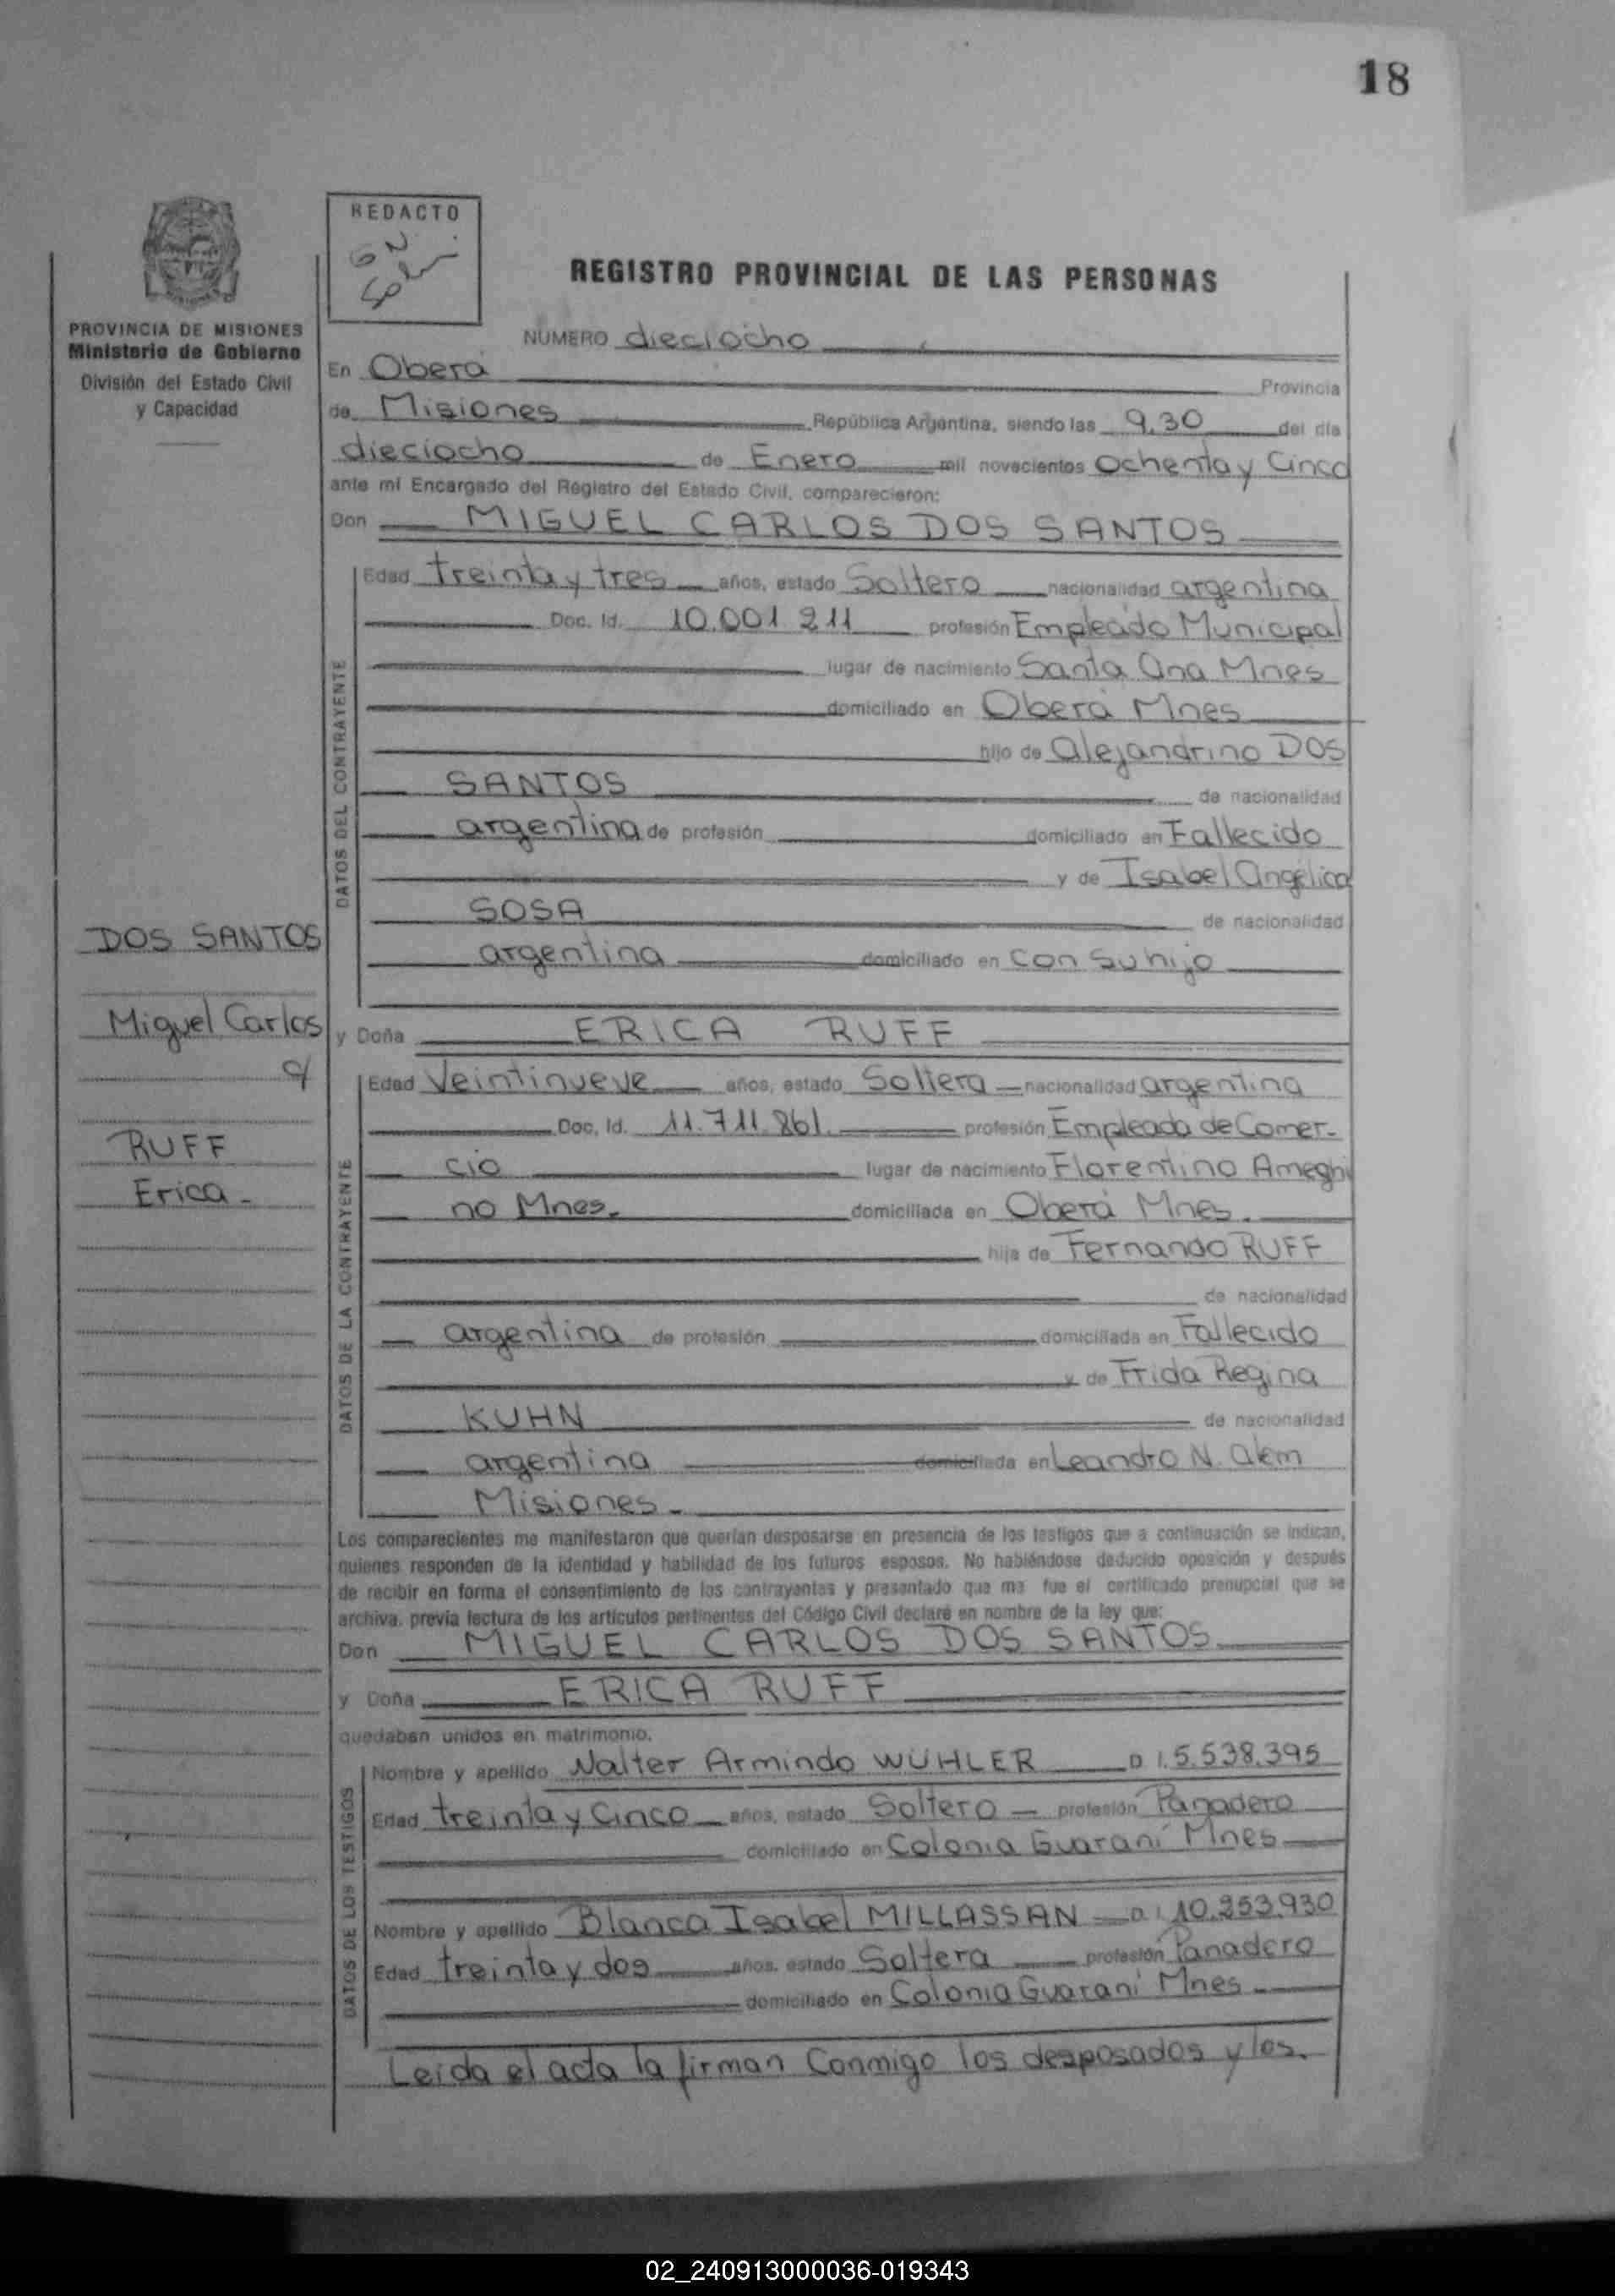 18
REDACTO
REGISTRO PROVINCIAL DE LAS PERSONAS
PROVINCIA DE MISIONES
Ministerio de Gobierno
División del Estado Civil
y Capacidad
NUMERO dieciocho
En Oberá Provincia
de Misiones República Argentina, siendo las 9,30 del día
dieciocho de Enero mil novecientos Ochenta y Cinco
ante mí Encargado del Registro del Estado Civil, comparecieron:
Don MIGUEL CARLOS DOS SANTOS
DATOS DEL CONTRAYENTE
Edad treinta y tres años, estado Soltero nacionalidad argentina
Doc. Id. 10.001.211 profesión Empleado Municipal
lugar de nacimiento Santa Ana Mnes
domiciliado en Oberá Mnes
hijo de Alejandrino DOS
SANTOS de nacionalidad
argentina de profesión domiciliado en Fallecido
y de Isabel Angélica
SOSA de nacionalidad
argentina domiciliado en con su hijo
DOS SANTOS
Miguel Carlos
c/
RUFF
Erica -
y Doña ERICA RUFF
DATOS DE LA CONTRAYENTE
Edad Veintinueve años, estado Soltera nacionalidad argentina
Doc. Id. 11.711.861. profesión Empleada de Comer-
cio lugar de nacimiento Florentino Ameghi
no Mnes. domiciliada en Oberá Mnes.
hija de Fernando RUFF
de nacionalidad
argentina de profesión domiciliada en Fallecido
y de Frida Regina
KUHN de nacionalidad
argentina domiciliada en Leandro N. Alem
Misiones -
Los comparecientes me manifestaron que querían desposarse en presencia de los testigos que a continuación se indican,
quienes responden de la identidad y habilidad de los futuros esposos. No habiéndose deducido oposición y después
de recibir en forma el consentimiento de los contrayentes y presentado que me fue el certificado prenupcial que se
archiva, previa lectura de los artículos pertinentes del Código Civil declaré en nombre de la ley que:
Don MIGUEL CARLOS DOS SANTOS
y Doña ERICA RUFF
quedaban unidos en matrimonio.
DATOS DE LOS TESTIGOS
Nombre y apellido Walter Armindo WUHLER D.I. 5.538.395
Edad treinta y Cinco años, estado Soltero profesión Panadero
domiciliado en Colonia Guaraní Mnes
Nombre y apellido Blanca Isabel MILLASSAN D.I. 10.253.930
Edad treinta y dos años, estado Soltera profesión Panadero
domiciliado en Colonia Guaraní Mnes
Leída el acta la firman Conmigo los desposados y los.
02_240913000036-019343